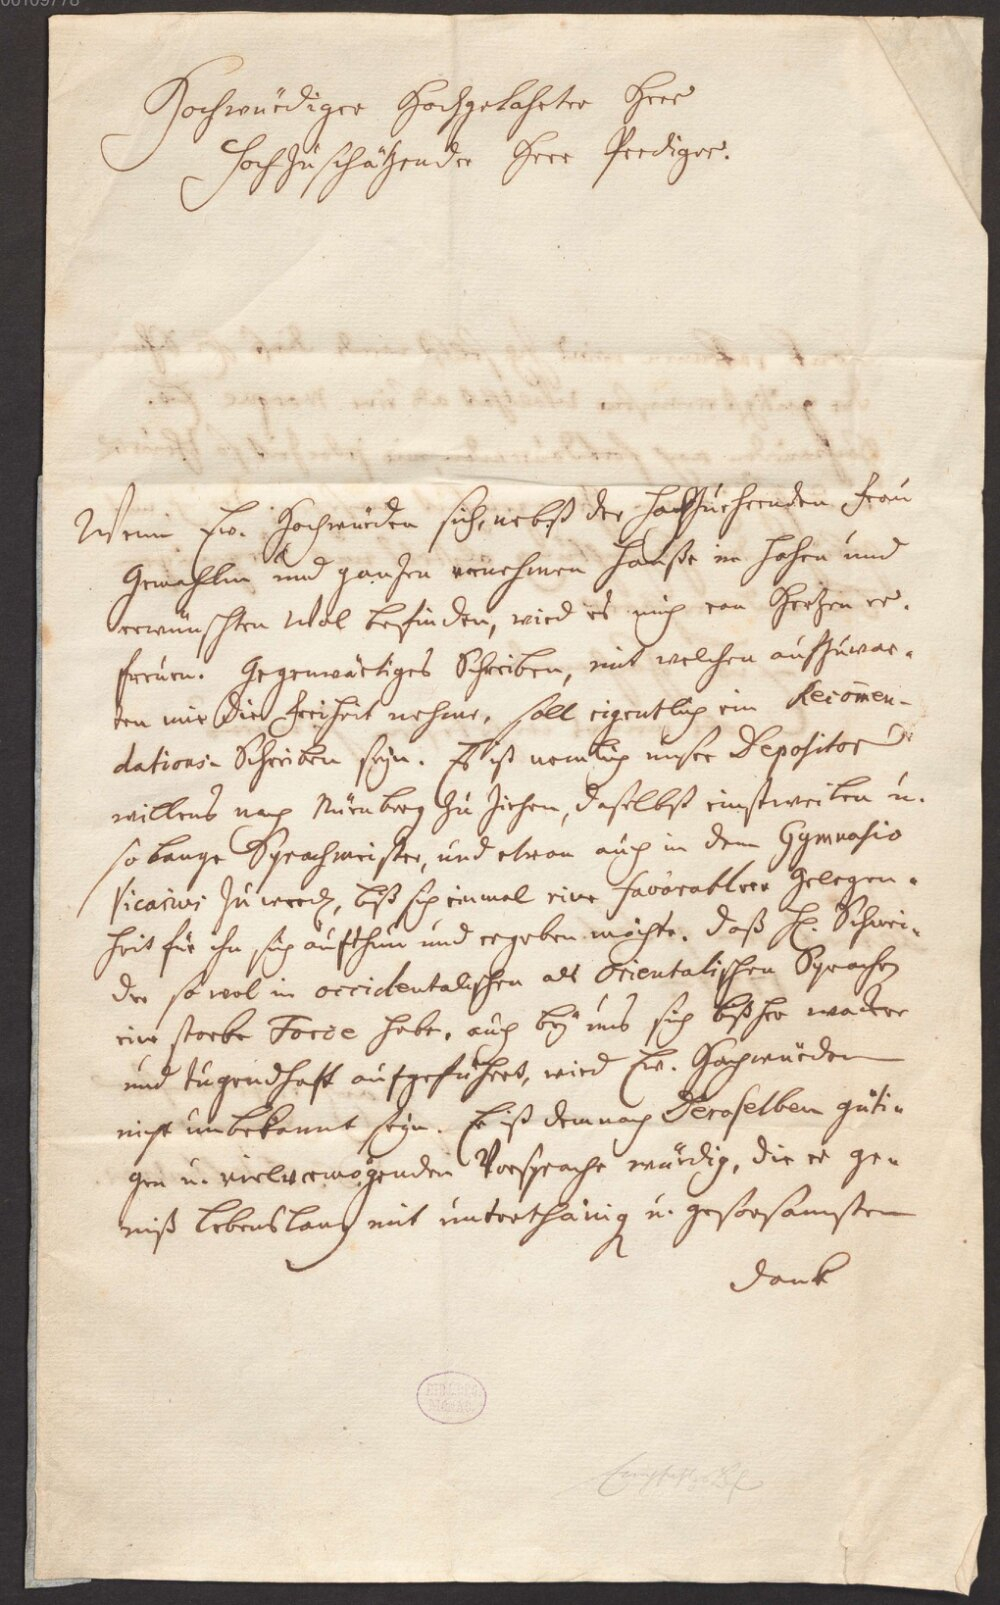 00109778
Hochwürdiger Hochgelahrter Herr
Hochzuschätzender Herr Prediger.
Wenn Ew. Hochwürden sich, nebst der Hochzuehrenden Frau
Gemahlin und ganzen vornehmen Hauße in hohen und
erwünschten Wol befinden, wird es mich von Hertzen er-
freuen. Gegenwärtiges Schreiben, mit welchen aufzuwar-
ten mir die Freiheit nehme, soll eigentlich ein Recom̄en-
dations-Schreiben seyn. Es ist nemlich unser Depositor
willens nach Nürnberg zu ziehen, daselbst einstweilen u.
so lange Sprachmeister, und etwan auch in dem Gymnasio
Vicarius zu werdē, biß sich einmal eine favorablere Gelegen-
heit für ihn sich aufthun und ergeben möchte. Daß H. Schnei-
der so wol in occidentalischen als Orientalischen Sprachen
eine starke Force habe, auch bey uns sich bißher wacker
und tugendhaft aufgeführet, wird Ew. Hochwürden
nicht unbekannt seyn. Er ist demnach Deroselben güti-
gen u. vielvermögenden Vorsprache würdig, die er ge-
wiß lebenslang mit unterthänig u. gehorsamsten
Dank